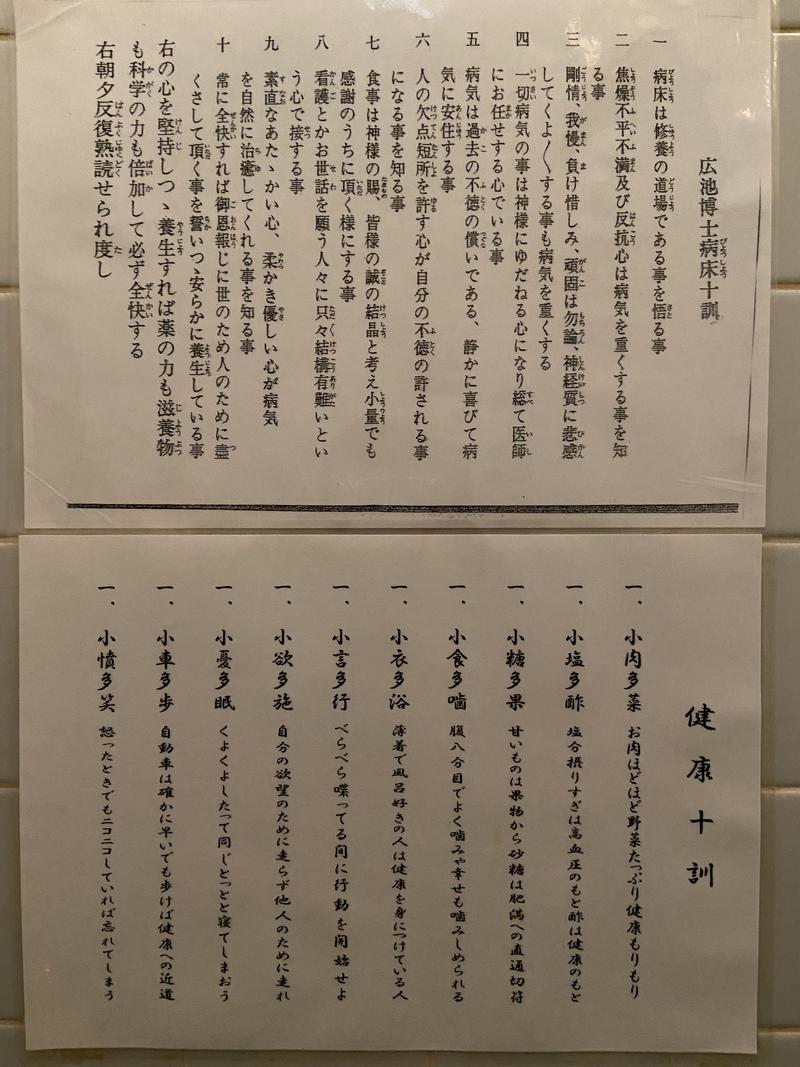 広池博士病床十訓
一 病床は修養の道場である事を悟る事
二 焦燥不平不満及び反抗心は病気を重くする事を知
る事
三 剛情、我慢、負け惜しみ、頑固は勿論、神経質に悲感
してくよ〳〵する事も病気を重くする
四 一切病気の事は神様にゆだねる心になり総て医師
にお任せする心でいる事
五 病気は過去の不徳の償いである、静かに喜びて病
気に安住する事
六 人の欠点短所を許す心が自分の不徳の許される事
になる事を知る事
七 食事は神様の賜、皆様の誠の結晶と考え小量でも
感謝のうちに頂く様にする事
八 看護とかお世話を願う人々に只々結構有難いとい
う心で接する事
九 素直なあたゝかい心、柔かき優しい心が病気
を自然に治癒してくれる事を知る事
十 常に全快すれば御恩報じに世のため人のために盡
くさして頂く事を誓いつゝ安らかに養生している事
右の心を堅持しつゝ養生すれば薬の力も滋養物
も科学の力も倍加して必ず全快する
右朝夕反復熟読せられ度し
健康十訓
一、小肉多菜 お肉ほどほど野菜たっぷり健康もりもり
一、小塩多酢 塩分摂りすぎは高血圧のもと酢は健康のもと
一、小糖多果 甘いものは果物から砂糖は肥満への直通切符
一、小食多噛 腹八分目でよく噛みや幸せも噛みしめられる
一、小衣多浴 薄着で風呂好きの人は健康を身につけている人
一、小言多行 べらべら喋ってる間に行動を開始せよ
一、小欲多施 自分の欲望のために走らず他人のために走れ
一、小憂多眠 くよくよしたって同じとっとと寝てしまおう
一、小車多歩 自動車は確かに早いでも歩けば健康への近道
一、小憤多笑 怒ったときでもニコニコしていれば忘れてしまう